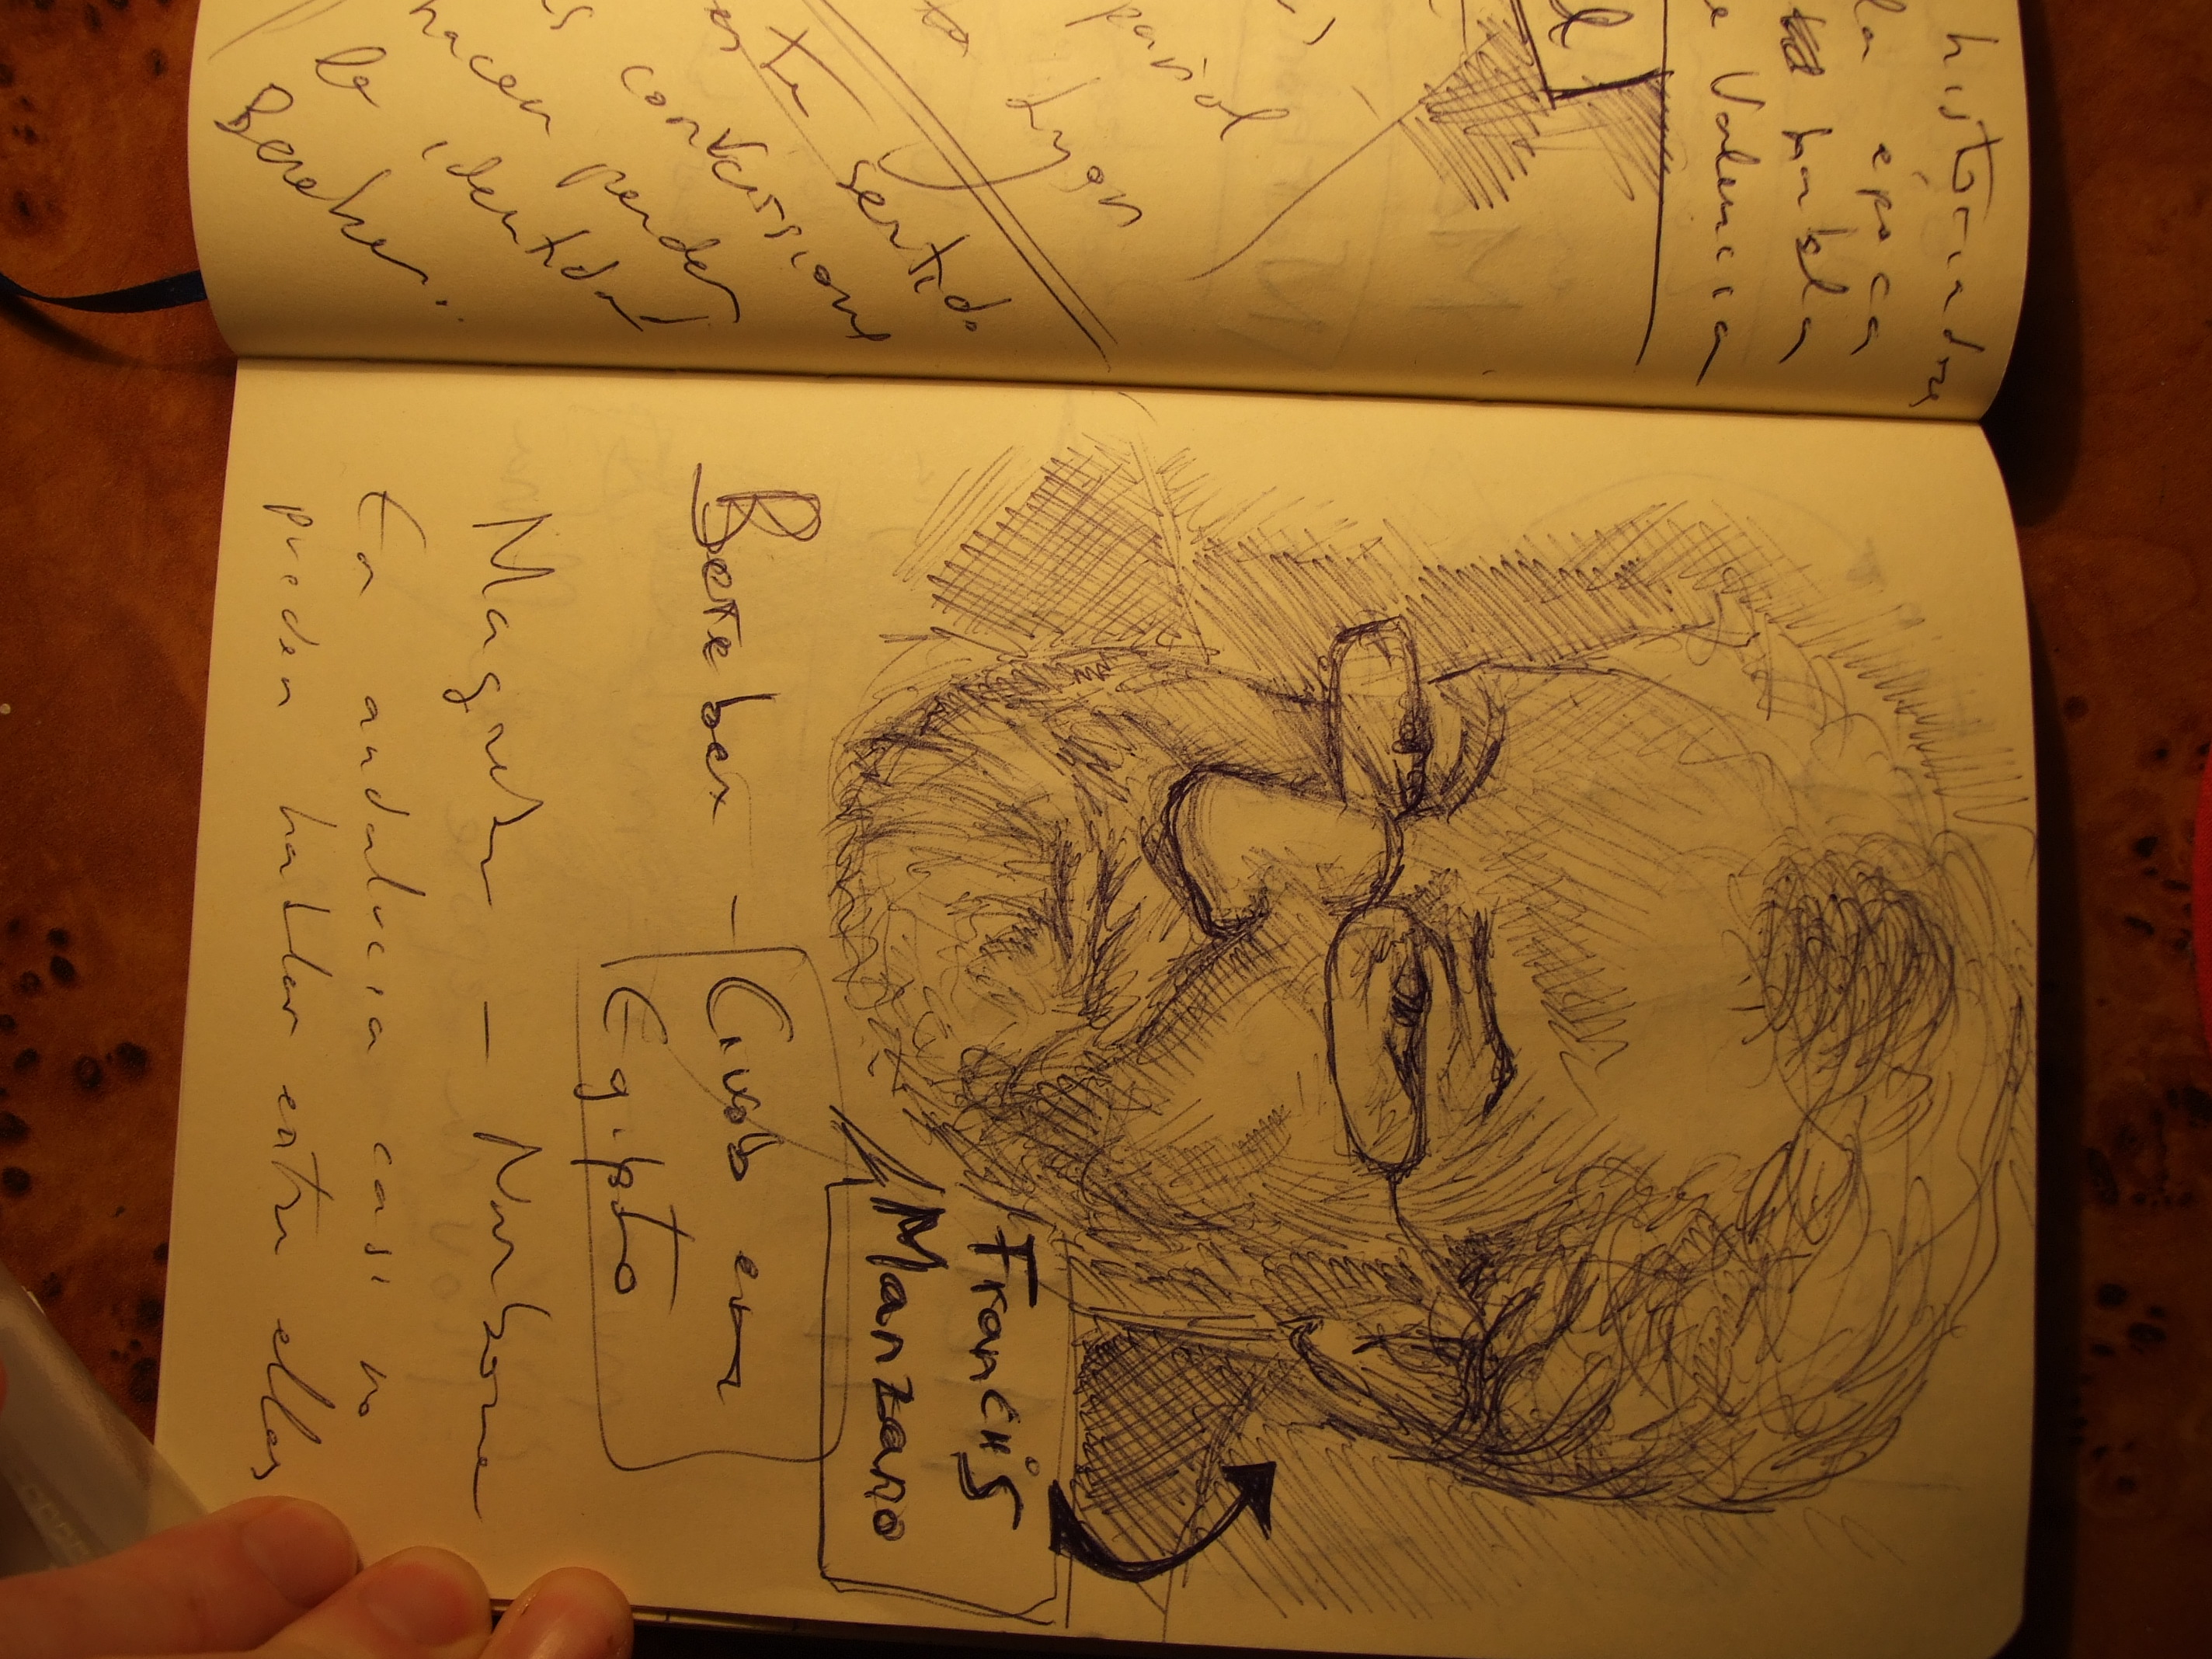 historiadores
la epoca
habla
e Valencia
el
pañol
Lyon
sentido
conversiones
hacen perder
la identidad
Bereber.
Francis
Manzano
Bereber —
Egipto
— Narbonne
En andalucia casi no
pueden hablar entre ellos